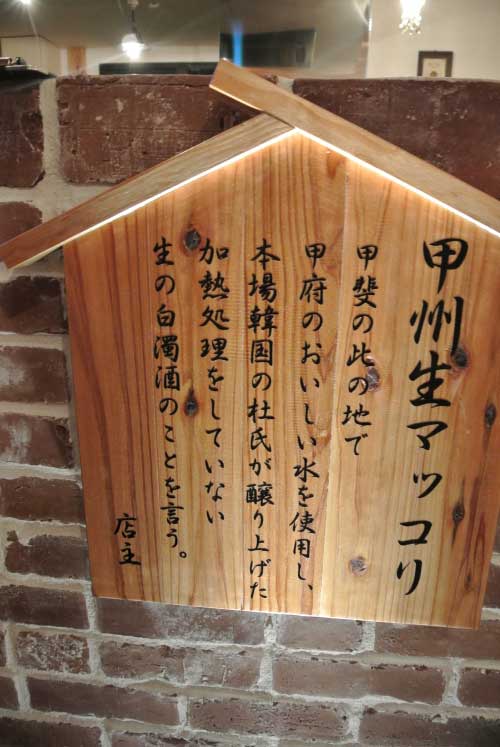 甲州生マッコリ
甲斐の此の地で
甲府のおいしい水を使用し、
本場韓国の杜氏が醸り上げた
加熱処理をしていない
生の白濁酒のことを言う。
店主